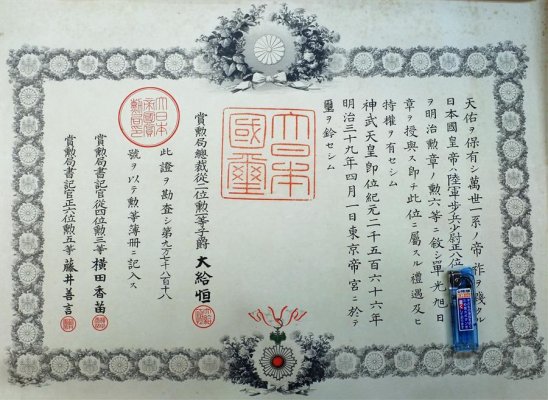 天佑ヲ保有シ萬世一系ノ帝祚ヲ踐タル
日本國皇帝ハ陸軍歩兵少尉正八位
ヲ明治勲章ノ勲六等ニ敘シ單光旭日
章ヲ授與ス即チ此位ニ屬スル禮遇及ヒ
特權ヲ有セシム
神武天皇即位紀元二千五百六十六年
明治三十九年四月一日東京帝宮ニ於テ
璽ヲ鈐セシム
大日本國璽
賞勲局總裁從二位勲一等子爵 大給恒
此證ヲ勘査シ第九万八百十八
號ヲ以テ勲等簿冊ニ記入ス
大日本帝國賞勲局印
賞勲局書記官從四位勲三等 横田香苗
賞勲局書記官正六位勲五等 藤井善言